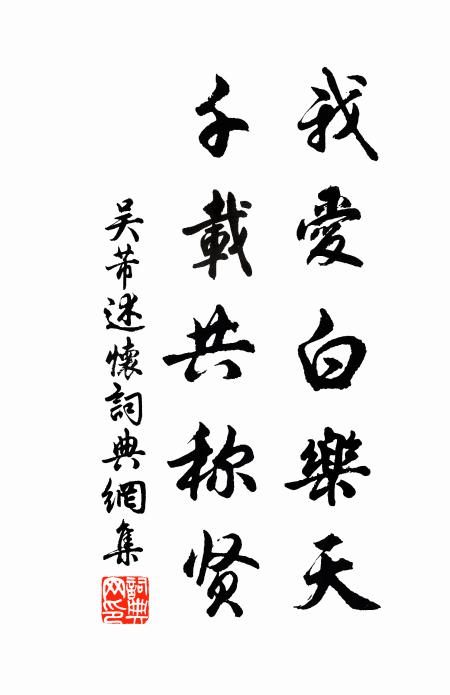 我愛白樂天
千載共称贤
吴芾述懷詞典網集
詞典网印